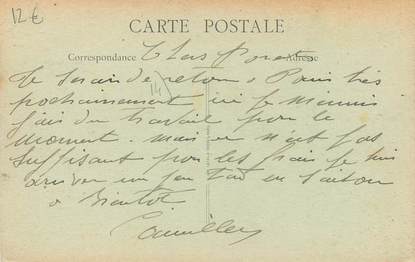 12€
CARTE POSTALE
Correspondance
Adresse
Je serai de retour à Paris très
prochainement ici je
fais du travail pour le
moment. mais ce n'est pas
suffisant pour les frais je suis
arriver un peu tard en saison
à Bientôt
Camille